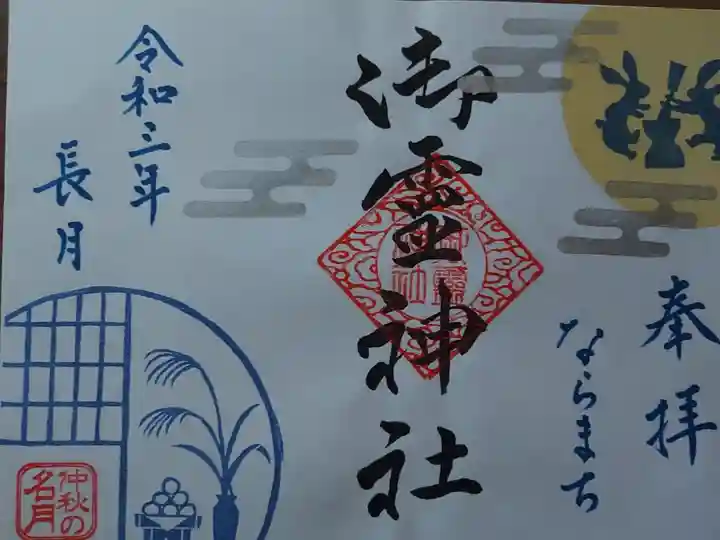 奉拝
ならまち
御霊神社
御霊神社
令和三年
長月
仲秋の
名月